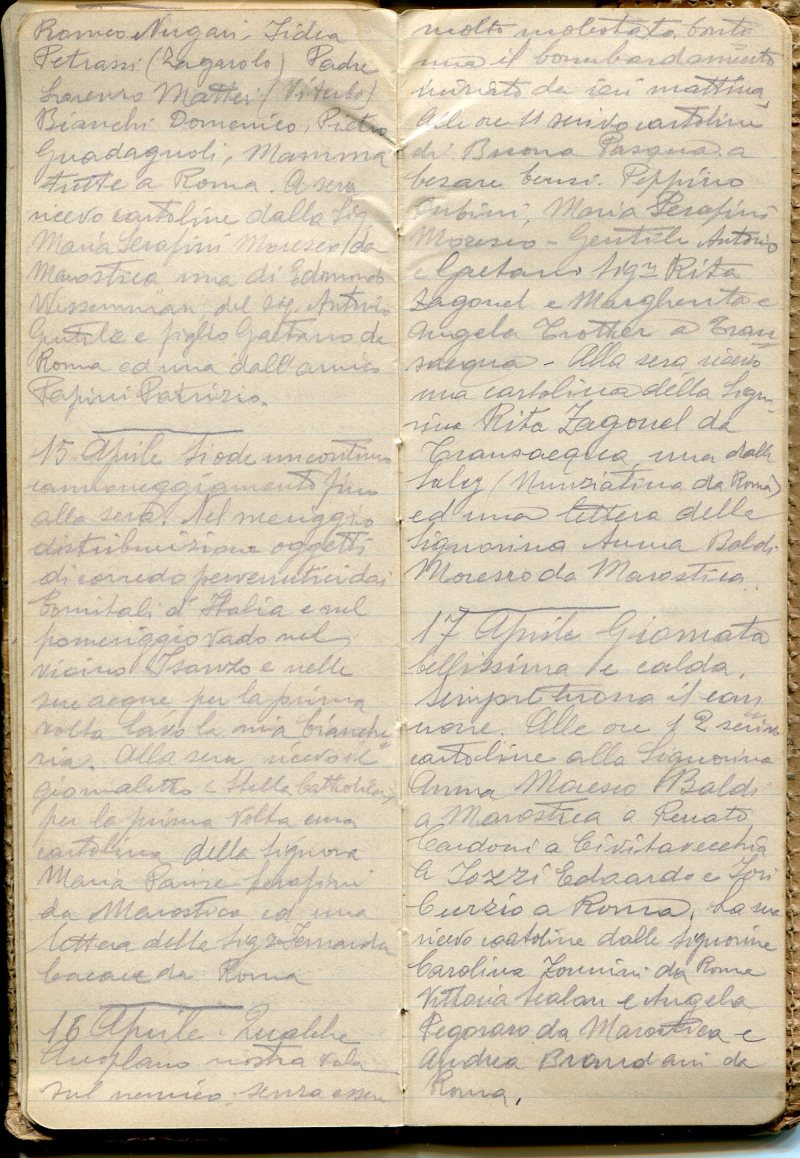 Romeo Nugari, Lidia
Petrassi (Zagarolo) Padre
Lorenzo Mattei (Viterbo)
Bianchi Domenico, Pietro
Guadagnoli, Mamma
tutte a Roma. A sera
ricevo cartoline dalla Sig
Maria Serafini Moresco da
Marostica una di Edmondo
del Sig. Antonio
Gentile e figlio Gaetano da
Roma ed una dall'amico
Papini Patrizio.
15 Aprile Si ode un continuo
cannoneggiamento fino
alla sera. Nel meriggio
distribuzione oggetti
di corredo pervenutici dai
Comitati d'Italia e nel
pomeriggio vado nel
vicino Isonzo e nelle
sue acque per la prima
volta lavo la mia bianche
ria. Alla sera ricevo il
giornaletto e Stella Cattolica,
per la prima volta una
cartolina della Signora
Maria Serafini
da Marostica ed una
lettera della Sigra Fernanda
da Roma
16 Aprile - Qualche
Aeroplano nostro vola
sul nemico, senza essere
molto molestato, conti
nua il bombardamento
iniziato da ieri mattina,
Alle ore 11 scrivo cartoline
di Buona Pasqua a
Peppino
Orbini, Maria Serafini
Moresco - Gentile Antonio
e Gaetano Sigra Rita
Zagonel e Margherita e
Angela Trotter a Tran
sacqua - Alla sera ricevo
una cartolina della Signo
rina Rita Zagonel da
Transacqua, una dalla
(Nunziatina da Roma)
ed una lettera della
Signorina Anna Baldi
Moresco da Marostica.
17 Aprile Giornata
bellissima e calda,
sempre tuona il can
none. Alle ore 12 scrivo
cartoline alla Signorina
Anna Moresco Baldi
a Marostica a Renato
Cardoni a Civitavecchia
A Iozzi Edoardo e Iori
Curzio a Roma, La sera
ricevo cartoline dalle Signorine
Carolina da Roma
Vittoria Scalari e Angela
Pegoraro da Marostica e
Andrea Brandani da
Roma.